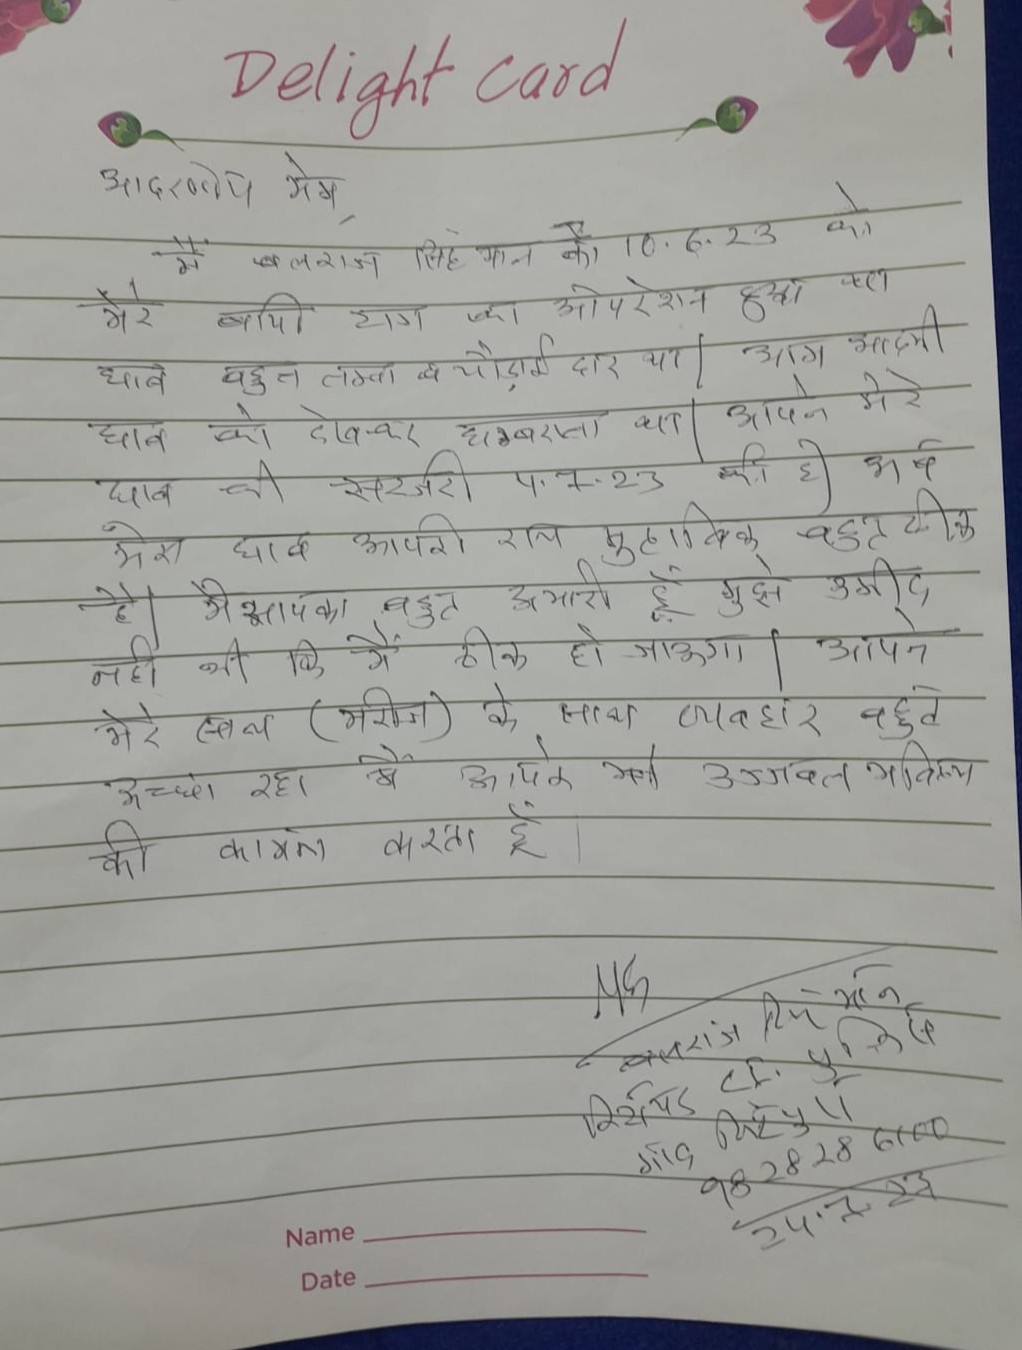 Delight Card
आदरणीय मेम,
मैं बलराज सिंह मान की 10.6.23 को
मेरे बायी टाग का ओपरेशन हुआ था
घाव बहुत लम्बा व चौड़ाई दार था। आम आदमी
घाव को देखकर घबराता था। आपने मेरे
घाव की सरजरी 4.7.23 की है। अब
मेरा घाव आपकी राय मुताबिक बहुत ठीक
है। मैं आपका बहुत अभारी हूँ मुझे उमीद
नही थी कि मैं ठीक हो जाऊगा। आपने
मेरे साथ (मरीज) के साथ व्यवहार बहुत
अच्छा रहा मैं आपके उज्जवल भविष्य
की कामना करता हूँ।
बलराज सिंह मान
रिटायर्ड पुलिस
गांव
98 28 28 6100
24.7.23
Name
Date